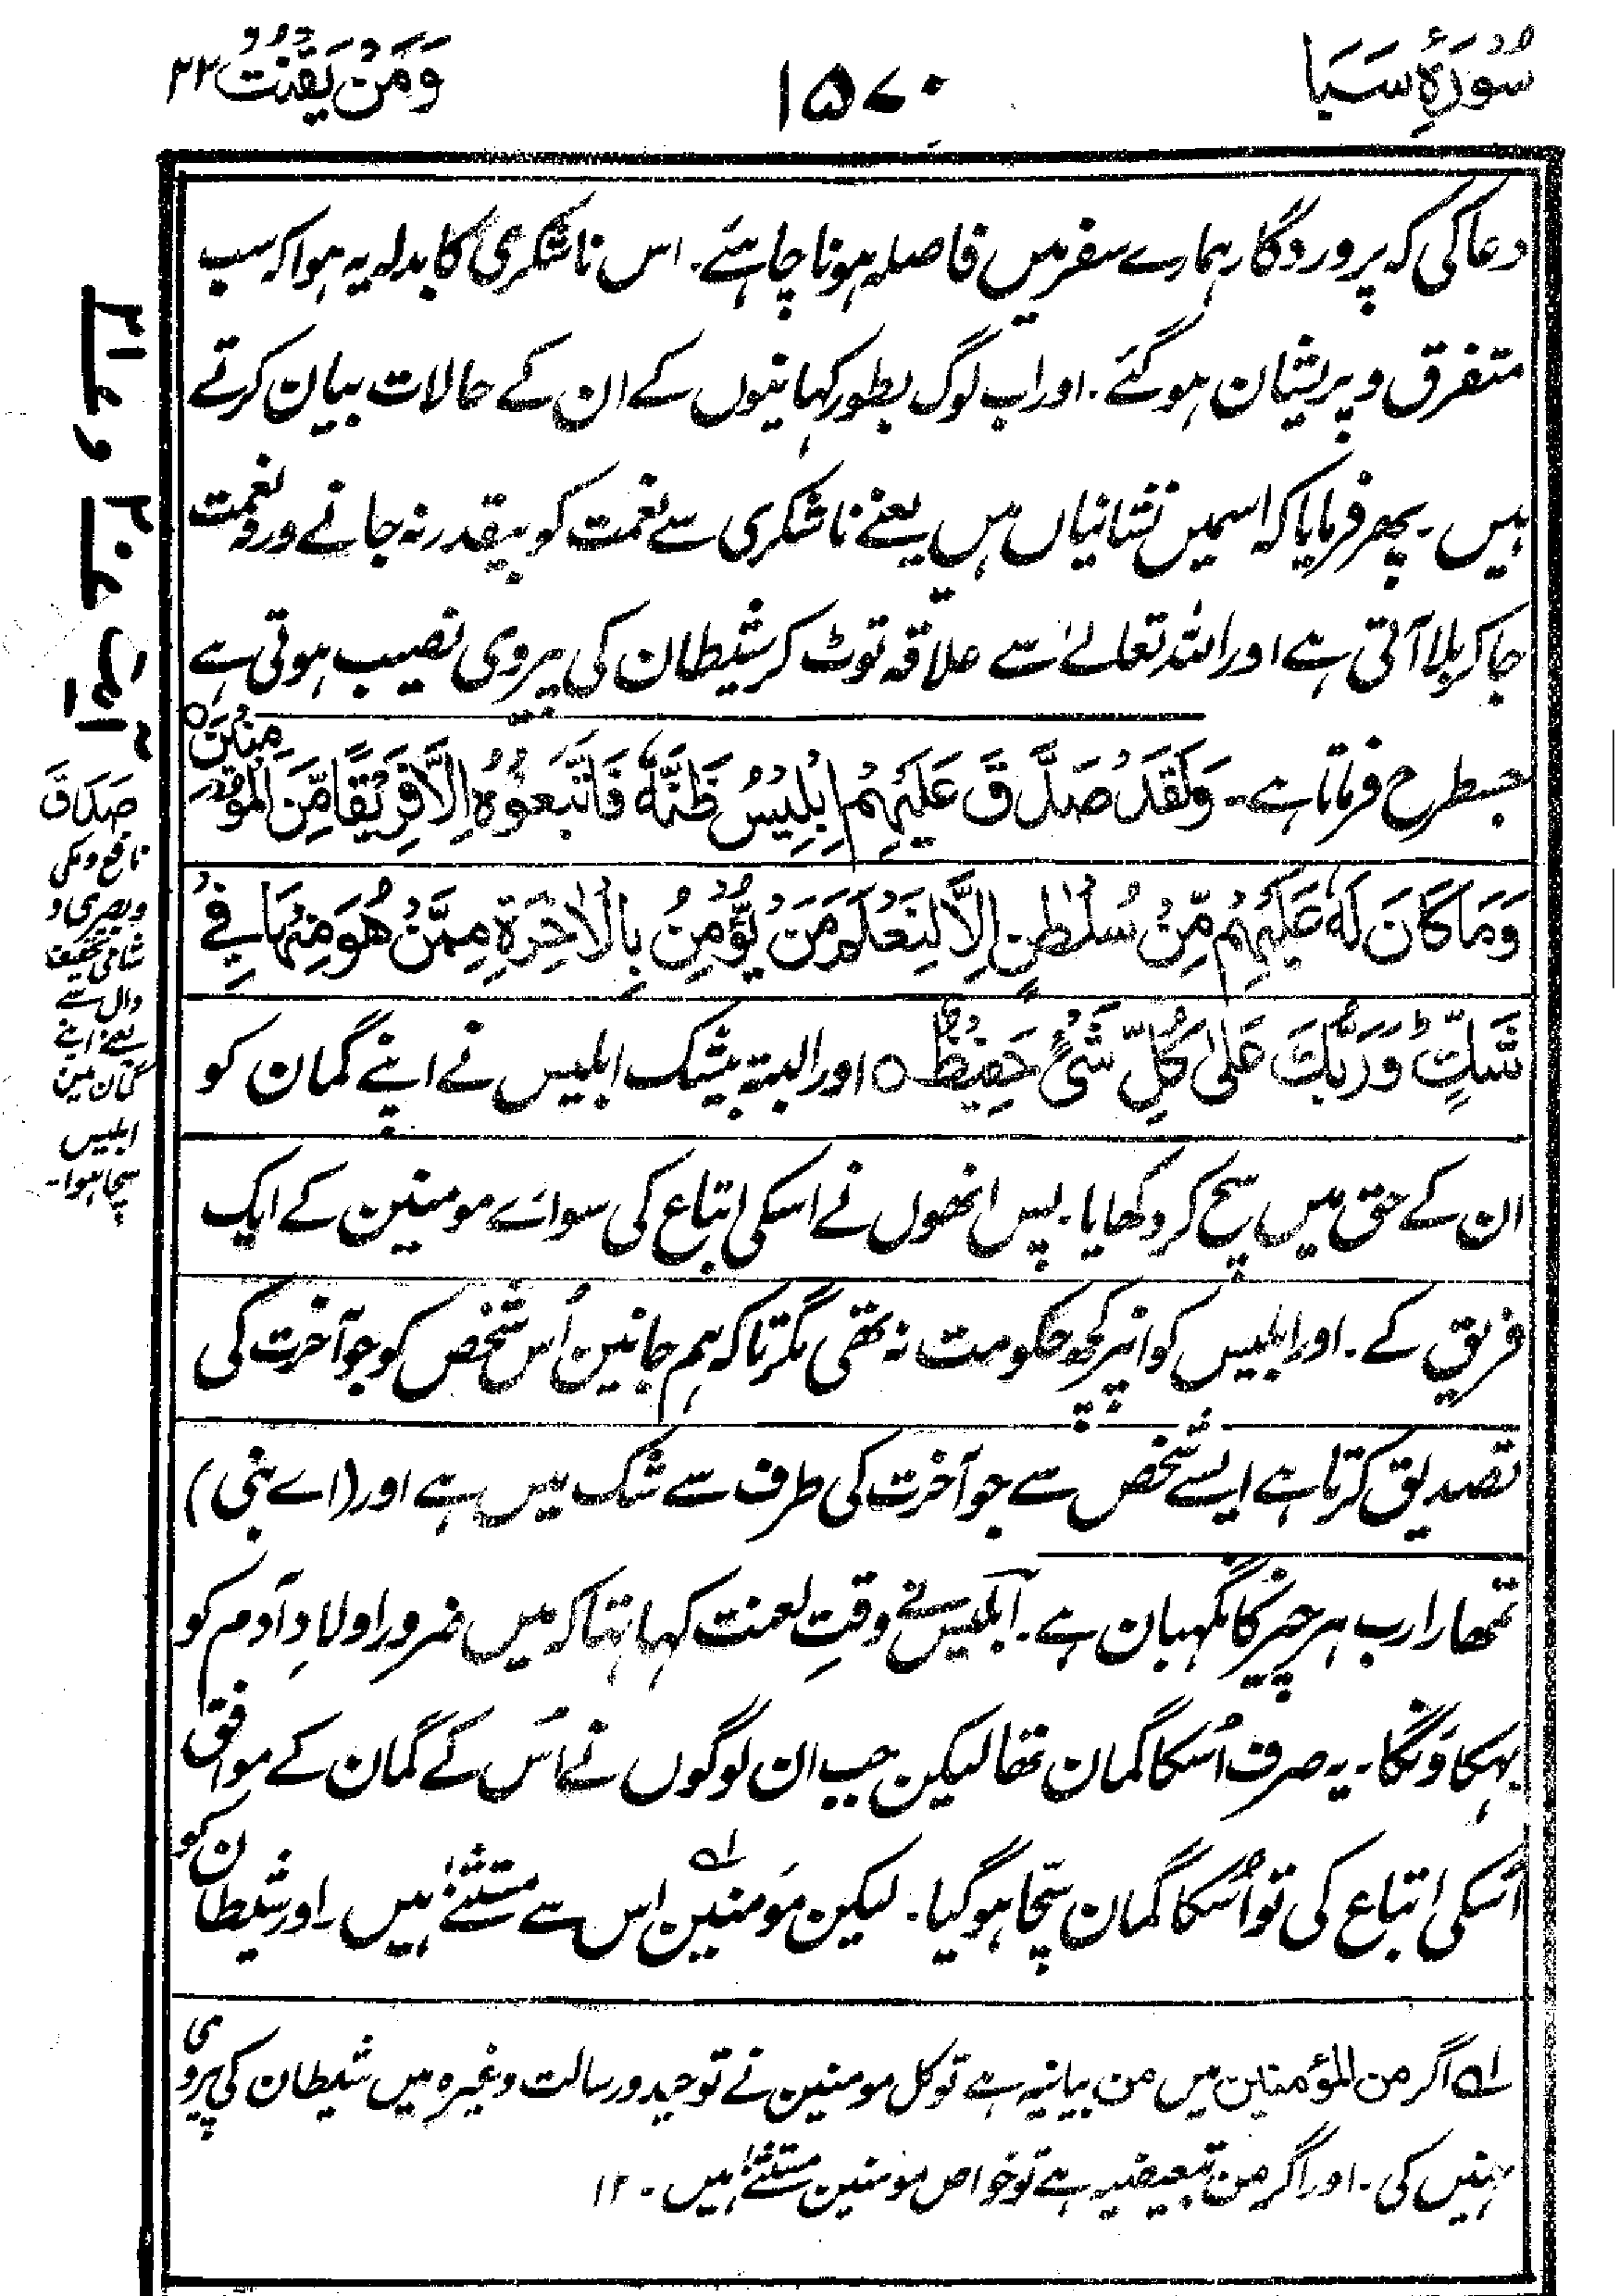 سُوْرَۂِ سَبَا
۱۵۷۰
وَمَنْ يَقْنُتْ ۲۲
دعا کی کہ پروردگار ہمارے سفر میں فاصلہ ہونا چاہئے۔ اس ناشکری کا بدلہ یہ ہوا کہ سب
متفرق و پریشان ہوگئے۔ اور اب لوگ بطور کہانیوں کے ان کے حالات بیان کرتے
ہیں۔ پھر فرمایا کہ اسمیں نشانیاں ہیں یعنے ناشکری سے نعمت کو بیقدر نہ جانے ورنہ نعمت
جاکر بلا آتی ہے اور اللہ تعالےٰ سے علاقہ توٹ کر شیطان کی پیروی نصیب ہوتی ہے
جسطرح فرماتا ہے۔ وَلَقَدْ صَدَّقَ عَلَيْهِمْ اِبْلِيْسُ ظَنَّهٗ فَاتَّبَعُوْهُ اِلَّا فَرِيْقًا مِّنَ الْمُؤْمِنِيْنَ ○
وَمَا كَانَ لَهٗ عَلَيْهِمْ مِّنْ سُلْطٰنٍ اِلَّا لِنَعْلَمَ مَنْ يُّؤْمِنُ بِالْاٰخِرَةِ مِمَّنْ هُوَ مِنْهَا فِيْ
شَكٍّ ؕ وَرَبُّكَ عَلٰى كُلِّ شَيْءٍ حَفِيْظٌ ○ اور البتہ بیشک ابلیس نے اپنے گمان کو
ان کے حق میں سچ کر دکھایا۔ پس انھوں نے اسکی اتباع کی سوائے مومنین کے ایک
فریق کے۔ اور ابلیس کو انپر کچھ حکومت نہ تھی مگر تاکہ ہم جانیں اُس شخص کو جو آخرت کی
تصدیق کرتا ہے ایسے شخص سے جو آخرت کی طرف سے شک میں ہے اور (اے نبی)
تمھارا رب ہر چیز کا نگہبان ہے۔ ابلیس نے وقتِ لعنت کہا تہا کہ میں ضرور اولادِ آدم کو
بہکاؤنگا۔ یہ صرف اُسکا گمان تھا لیکن جب ان لوگوں نے اُس کے گمان کے موافق
اُسکی اتباع کی تو اُسکا گمان سچّا ہوگیا۔ لیکن مؤمنین لہ اس سے مستثنےٰ ہیں۔ اور شیطان کو
لہ اگر من المؤمنین میں من بیانیہ ہے تو کل مومنین نے توحید و رسالت وغیرہ میں شیطان کی پیروی
نہیں کی۔ اور اگر من تبعیضیہ ہے تو خواص مومنین مستثنےٰ ہیں۔ ۱۲
صَدَقَ
نافع و مکی
و بصری و
شامی تخفیف
دال سے
یعنے اپنے
گمان میں
ابلیس
سچا ہوا۔